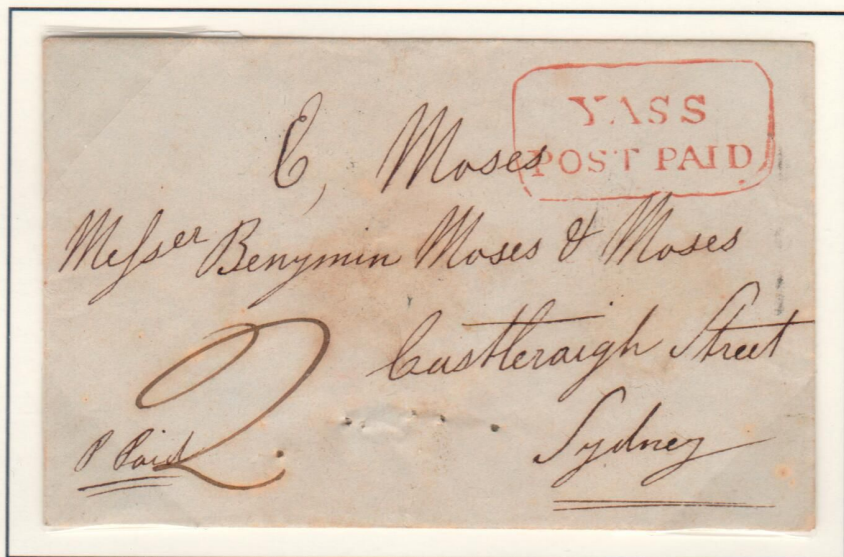 YASS
POST PAID
C, Moses
Messer Benymin Moses & Moses
Castleraigh Street
Sydney
2
P Paid